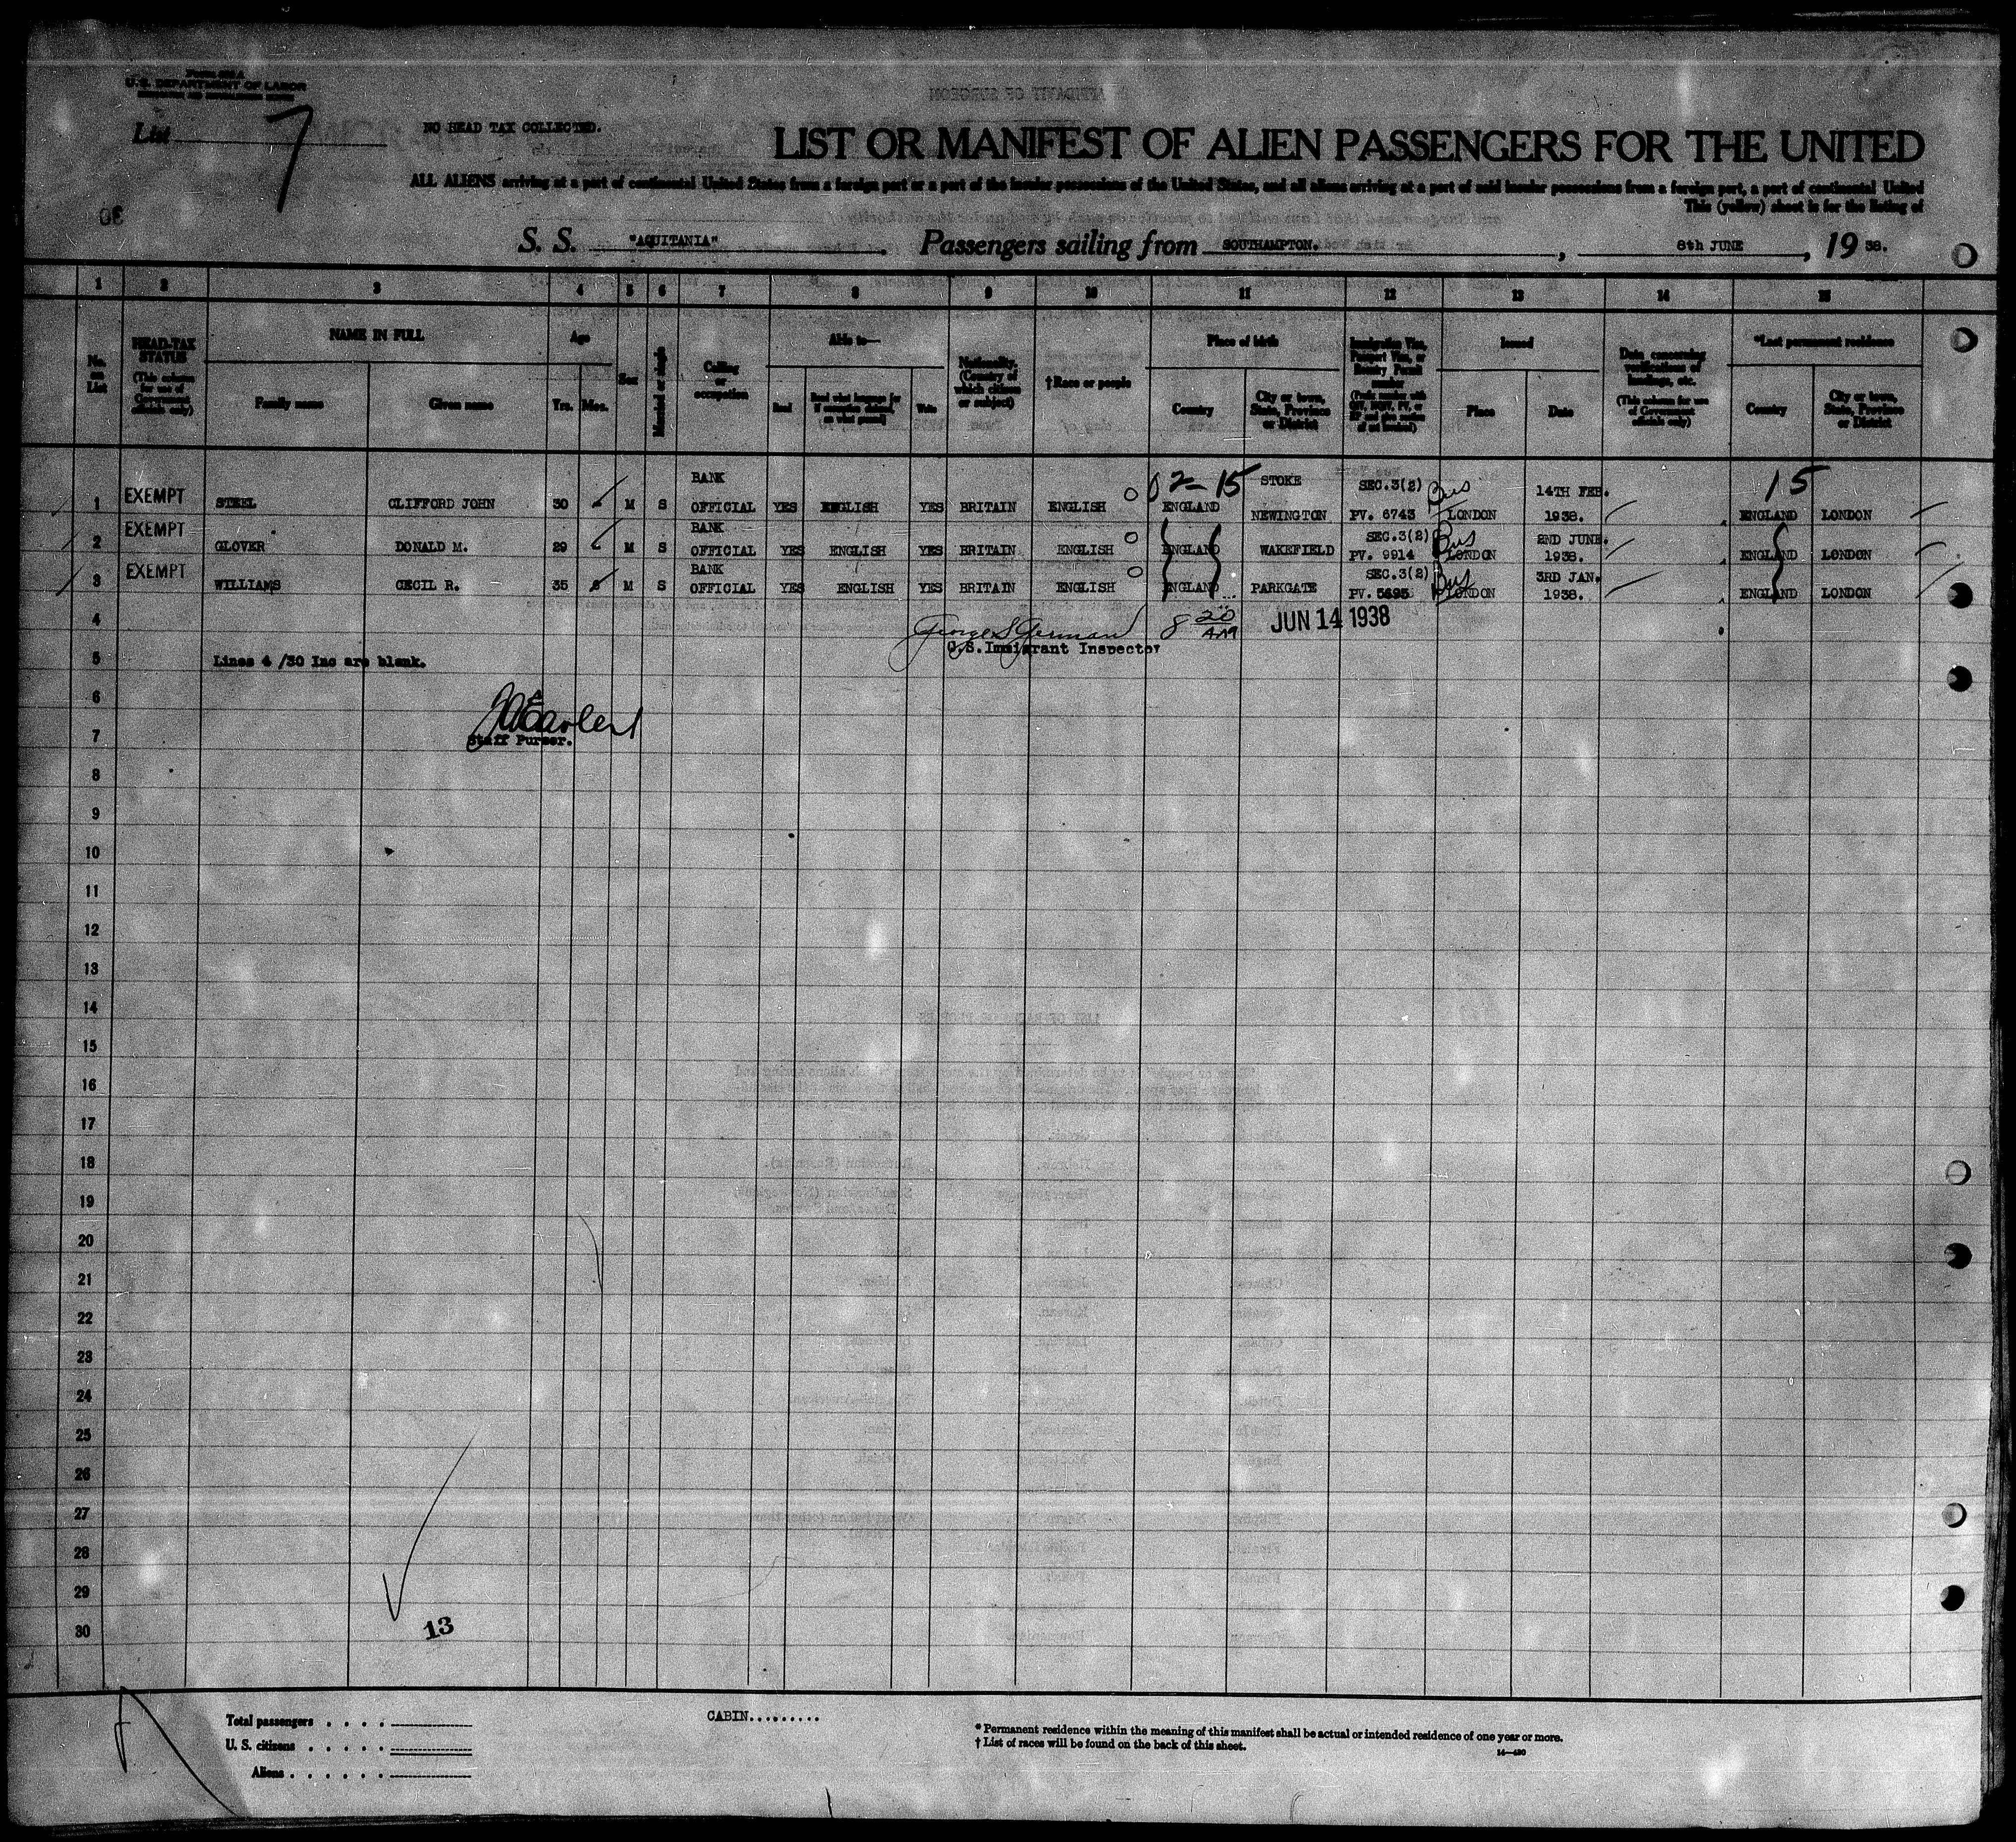 U.S. DEPARTMENT OF LABOR
List 7
NO HEAD TAX COLLECTED.
LIST OR MANIFEST OF ALIEN PASSENGERS FOR THE UNITED
ALL ALIENS arriving at a port of continental United States from a foreign port or a port of the insular possessions of the United States, and all aliens arriving at a port of said insular possessions from a foreign port, a port of continental United
This (yellow) sheet is for the listing of
S. S. "AQUITANIA" Passengers sailing from SOUTHAMPTON. , 8th JUNE , 19 38.
1 2 3 4 5 6 7 8 9 10 11 12 13 14 15
No. on List
HEAD-TAX STATUS (This column for use of Government officials only)
NAME IN FULL
Family name Given name
Age
Yrs. Mos.
Sex
Married or single
Calling or occupation
Able to—
Read Read what language [or if exemption claimed, on what ground] Write
Nationality. (Country of which citizen or subject)
†Race or people
Place of birth
Country City or town, State, Province or District
Immigration Visa, Passport Visa, or Reentry Permit number
Issued
Place Date
Data concerning verifications of landings, etc. (This column for use of Government officials only)
*Last permanent residence
Country City or town, State, Province or District
02-15 15
1 EXEMPT STEEL CLIFFORD JOHN 30 M S BANK OFFICIAL YES ENGLISH YES BRITAIN ENGLISH ENGLAND STOKE NEWINGTON SEC.3(2) PV. 6743 Bus LONDON 14TH FEB. 1938. ENGLAND LONDON
2 EXEMPT GLOVER DONALD M. 29 M S BANK OFFICIAL YES ENGLISH YES BRITAIN ENGLISH ENGLAND WAKEFIELD SEC.3(2) PV. 9914 Bus LONDON 2ND JUNE. 1938. ENGLAND LONDON
3 EXEMPT WILLIAMS CECIL R. 35 M S BANK OFFICIAL YES ENGLISH YES BRITAIN ENGLISH ENGLAND PARKGATE SEC.3(2) PV. 5695 Bus LONDON 3RD JAN. 1938. ENGLAND LONDON
4 George S German 8 20 AM JUN 14 1938
U.S. Immigrant Inspector
5 Lines 4 /30 Inc are blank.
6
7 Staff Purser.
8
9
10
11
12
13
14
15
16
17
18
19
20
21
22
23
24
25
26
27
28
29
30
13
Total passengers . . . .
U. S. citizens . . . . .
Aliens . . . . . .
CABIN.........
* Permanent residence within the meaning of this manifest shall be actual or intended residence of one year or more.
† List of races will be found on the back of this sheet.
14—430